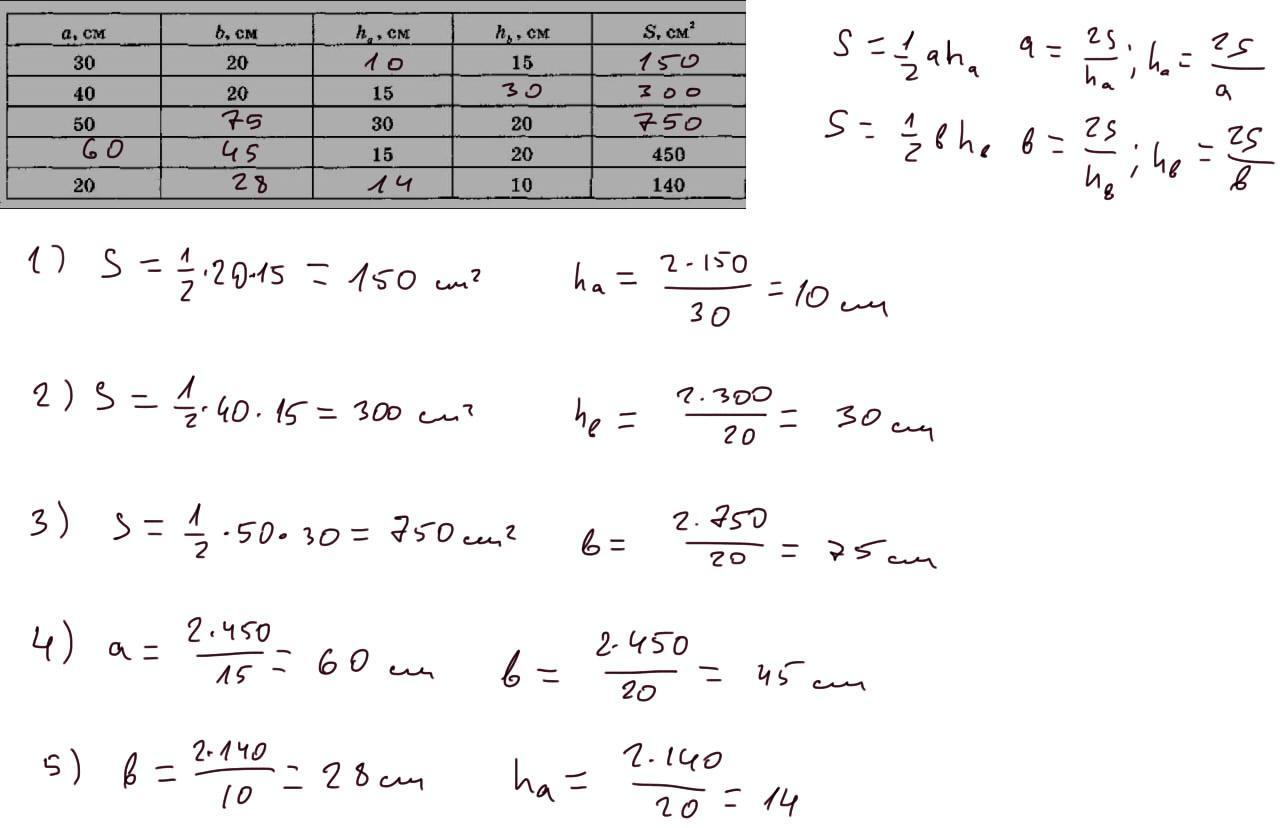 a, см b, см hₐ, см h_b, см S, см²
30 20 10 15 150
40 20 15 30 300
50 75 30 20 750
60 45 15 20 450
20 28 14 10 140
S = 1/2 ahₐ a = 2S/hₐ ; hₐ = 2S/a
S = 1/2 в hв в = 2S/hв ; hв = 2S/в
1) S = 1/2 · 20 · 15 = 150 см² hₐ = 2·150/30 = 10 см
2) S = 1/2 · 40 · 15 = 300 см² hв = 2·300/20 = 30 см
3) S = 1/2 · 50 · 30 = 750 см² в = 2·750/20 = 75 см
4) a = 2·450/15 = 60 см в = 2·450/20 = 45 см
5) в = 2·140/10 = 28 см hₐ = 2·140/20 = 14